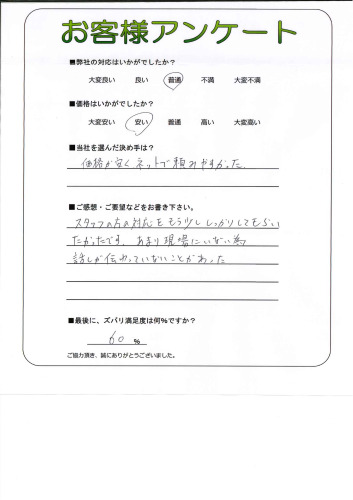 お客様アンケート
■弊社の対応はいかがでしたか?
大変良い 良い 普通 不満 大変不満
■価格はいかがでしたか?
大変安い 安い 普通 高い 大変高い
■当社を選んだ決め手は?
価格が安くネットで頼みやすかった
■ご感想・ご要望などをお書き下さい。
スタッフの方の対応をもう少ししっかりしてもらい
たかったです。あまり現場にいない為
話しが伝わっていないことがあった
■最後に、ズバリ満足度は何%ですか?
60 %
ご協力頂き、誠にありがとうございました。